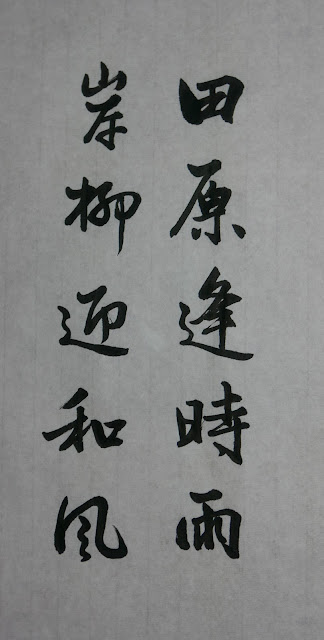 田原逢時雨
岸柳迎和風